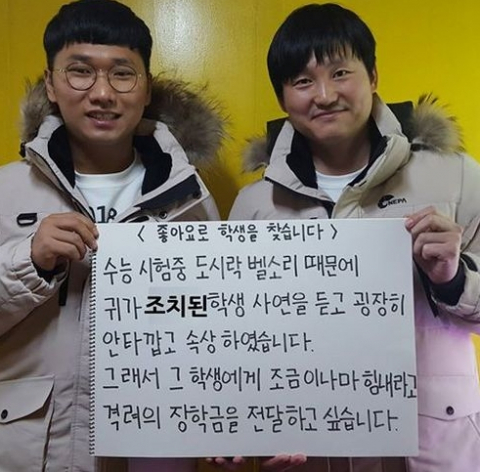 < 좋아요로 학생을 찾습니다 >
수능 시험중 도시락 벨소리 때문에
귀가 조치된 학생 사연을 듣고 굉장히
안타깝고 속상 하였습니다.
그래서 그 학생에게 조금이나마 힘내라고
격려의 장학금을 전달하고 싶습니다.
NEPA